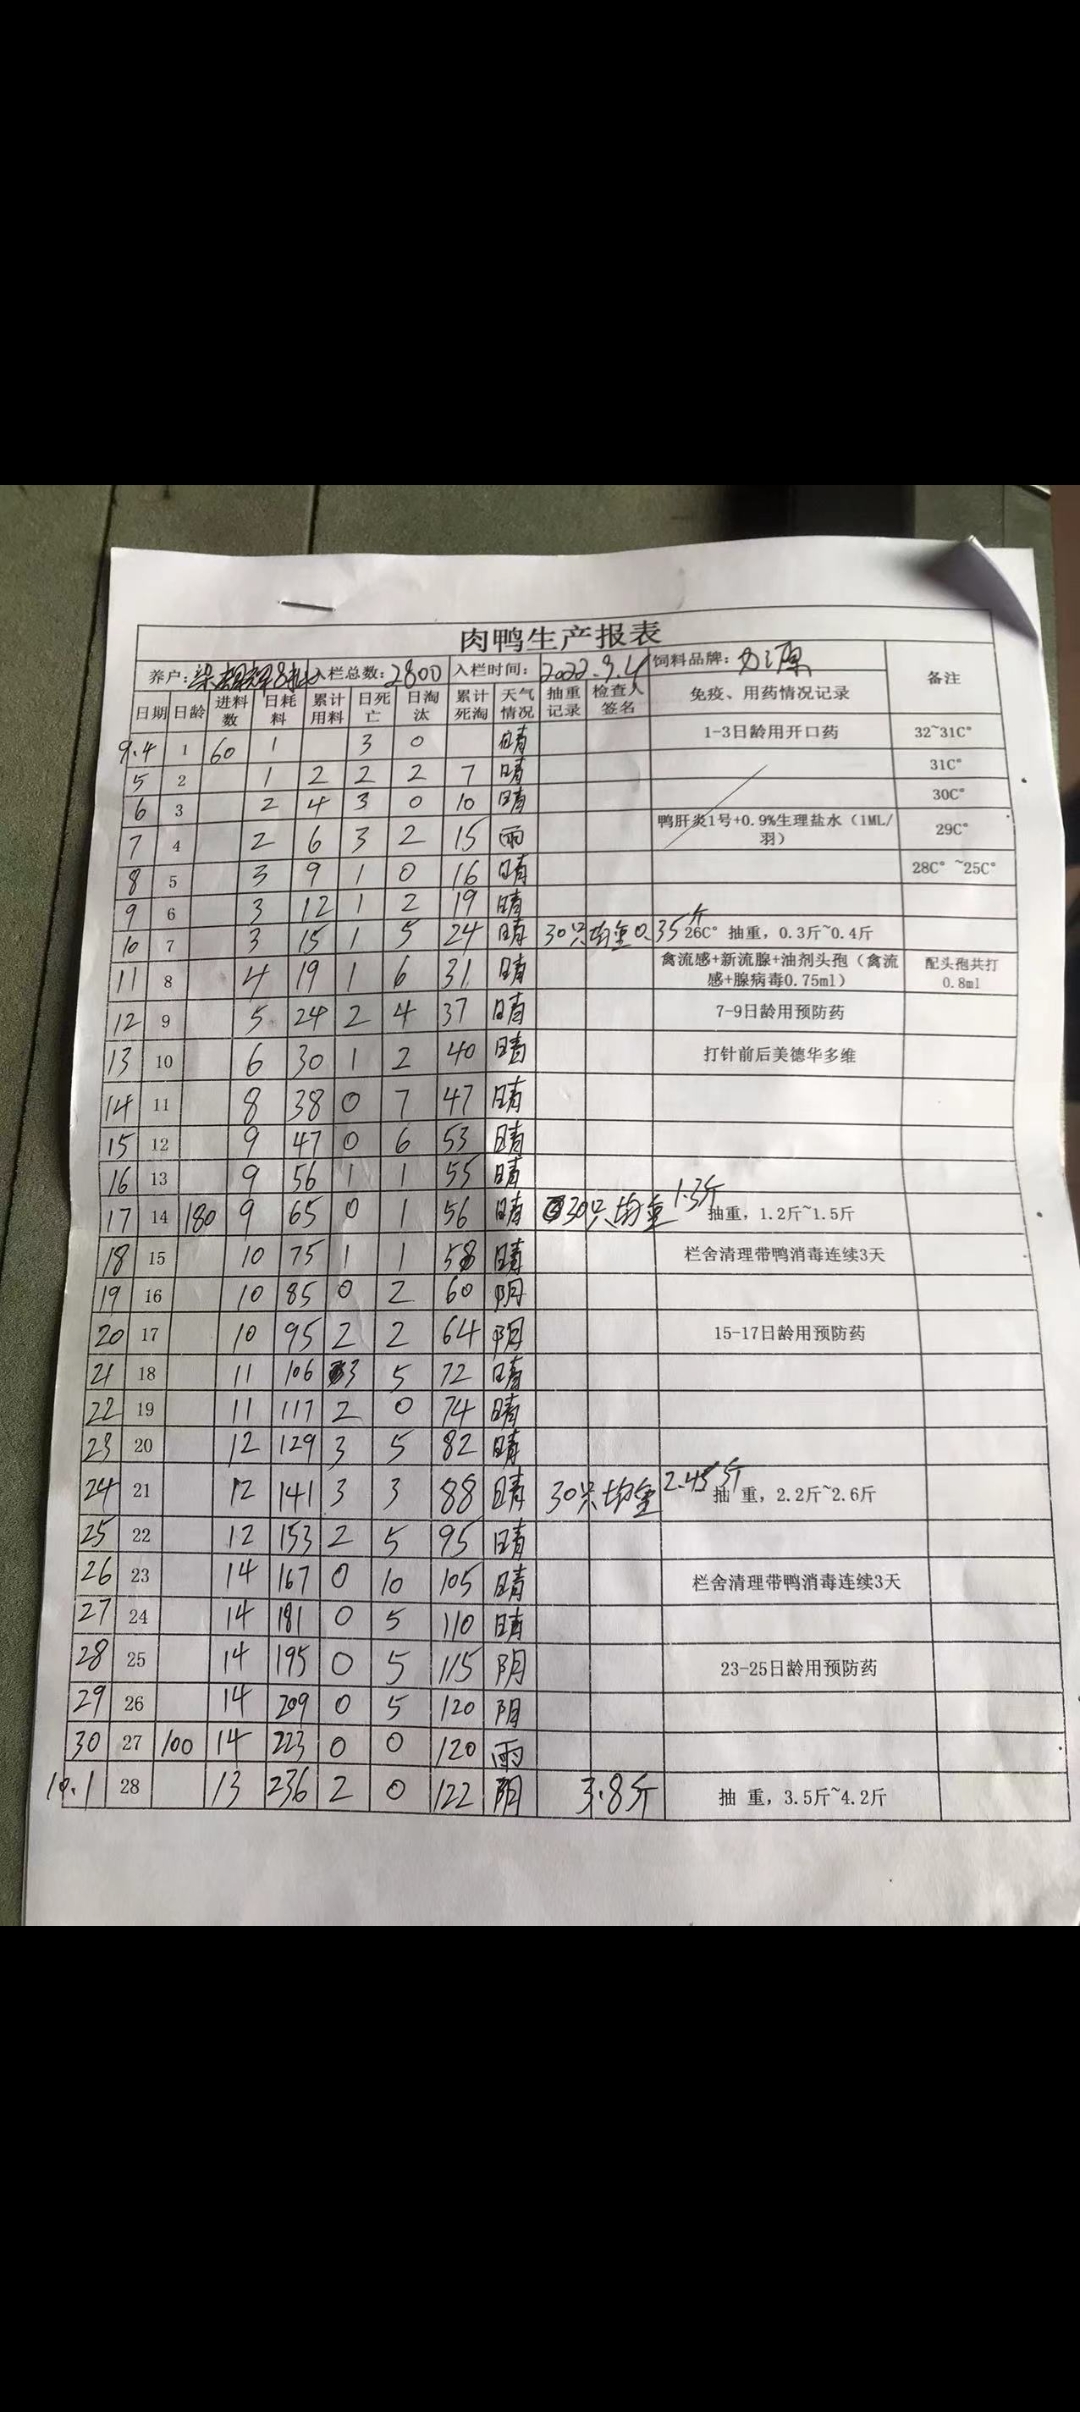 肉鸭生产报表
养户: 入栏总数:2800 入栏时间: 2022.9.4 饲料品牌: 备注
日期 日龄 进料数 日耗料 累计用料 日死亡 日淘汰 累计死淘 天气情况 抽重记录 检查人签名 免疫、用药情况记录
9.4 1 60 1 3 0 晴 1-3日龄用开口药 32~31C°
5 2 1 2 2 2 7 晴 31C°
6 3 2 4 3 0 10 晴 30C°
7 4 2 6 3 2 15 雨 鸭肝炎1号+0.9%生理盐水（1ML/羽） 29C°
8 5 3 9 1 0 16 晴 28C° ~25C°
9 6 3 12 1 2 19 晴
10 7 3 15 1 5 24 晴 30只均重0.35斤 26C° 抽重，0.3斤~0.4斤
11 8 4 19 1 6 31 晴 禽流感+新流腺+油剂头孢（禽流感+腺病毒0.75ml） 配头孢共打0.8ml
12 9 5 24 2 4 37 晴 7-9日龄用预防药
13 10 6 30 1 2 40 晴 打针前后美德华多维
14 11 8 38 0 7 47 晴
15 12 9 47 0 6 53 晴
16 13 9 56 1 1 55 晴
17 14 180 9 65 0 1 56 晴 30只均重1.3斤 抽重，1.2斤~1.5斤
18 15 10 75 1 1 58 晴 栏舍清理带鸭消毒连续3天
19 16 10 85 0 2 60 阴
20 17 10 95 2 2 64 阴 15-17日龄用预防药
21 18 11 106 3 5 72 晴
22 19 11 117 2 0 74 晴
23 20 12 129 3 5 82 晴
24 21 12 141 3 3 88 晴 30只均重2.45斤 抽 重，2.2斤~2.6斤
25 22 12 153 2 5 95 晴
26 23 14 167 0 10 105 晴 栏舍清理带鸭消毒连续3天
27 24 14 181 0 5 110 晴
28 25 14 195 0 5 115 阴 23-25日龄用预防药
29 26 14 209 0 5 120 阴
30 27 100 14 223 0 0 120 雨
10.1 28 13 236 2 0 122 阴 3.8斤 抽 重，3.5斤~4.2斤